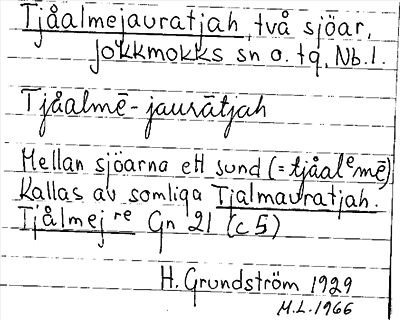 Tjåalmejauratjah, två sjöar,
Jokkmokks sn o. tg, Nb. l.
Tjåalmē-jaurātjah
Mellan sjöarna ett sund (= tjåalᵉmē)
Kallas av somliga Tjalmauratjah.
Tjålmejʳᵉ Gn 21 (c 5)
H. Grundström 1929
M.L. 1966